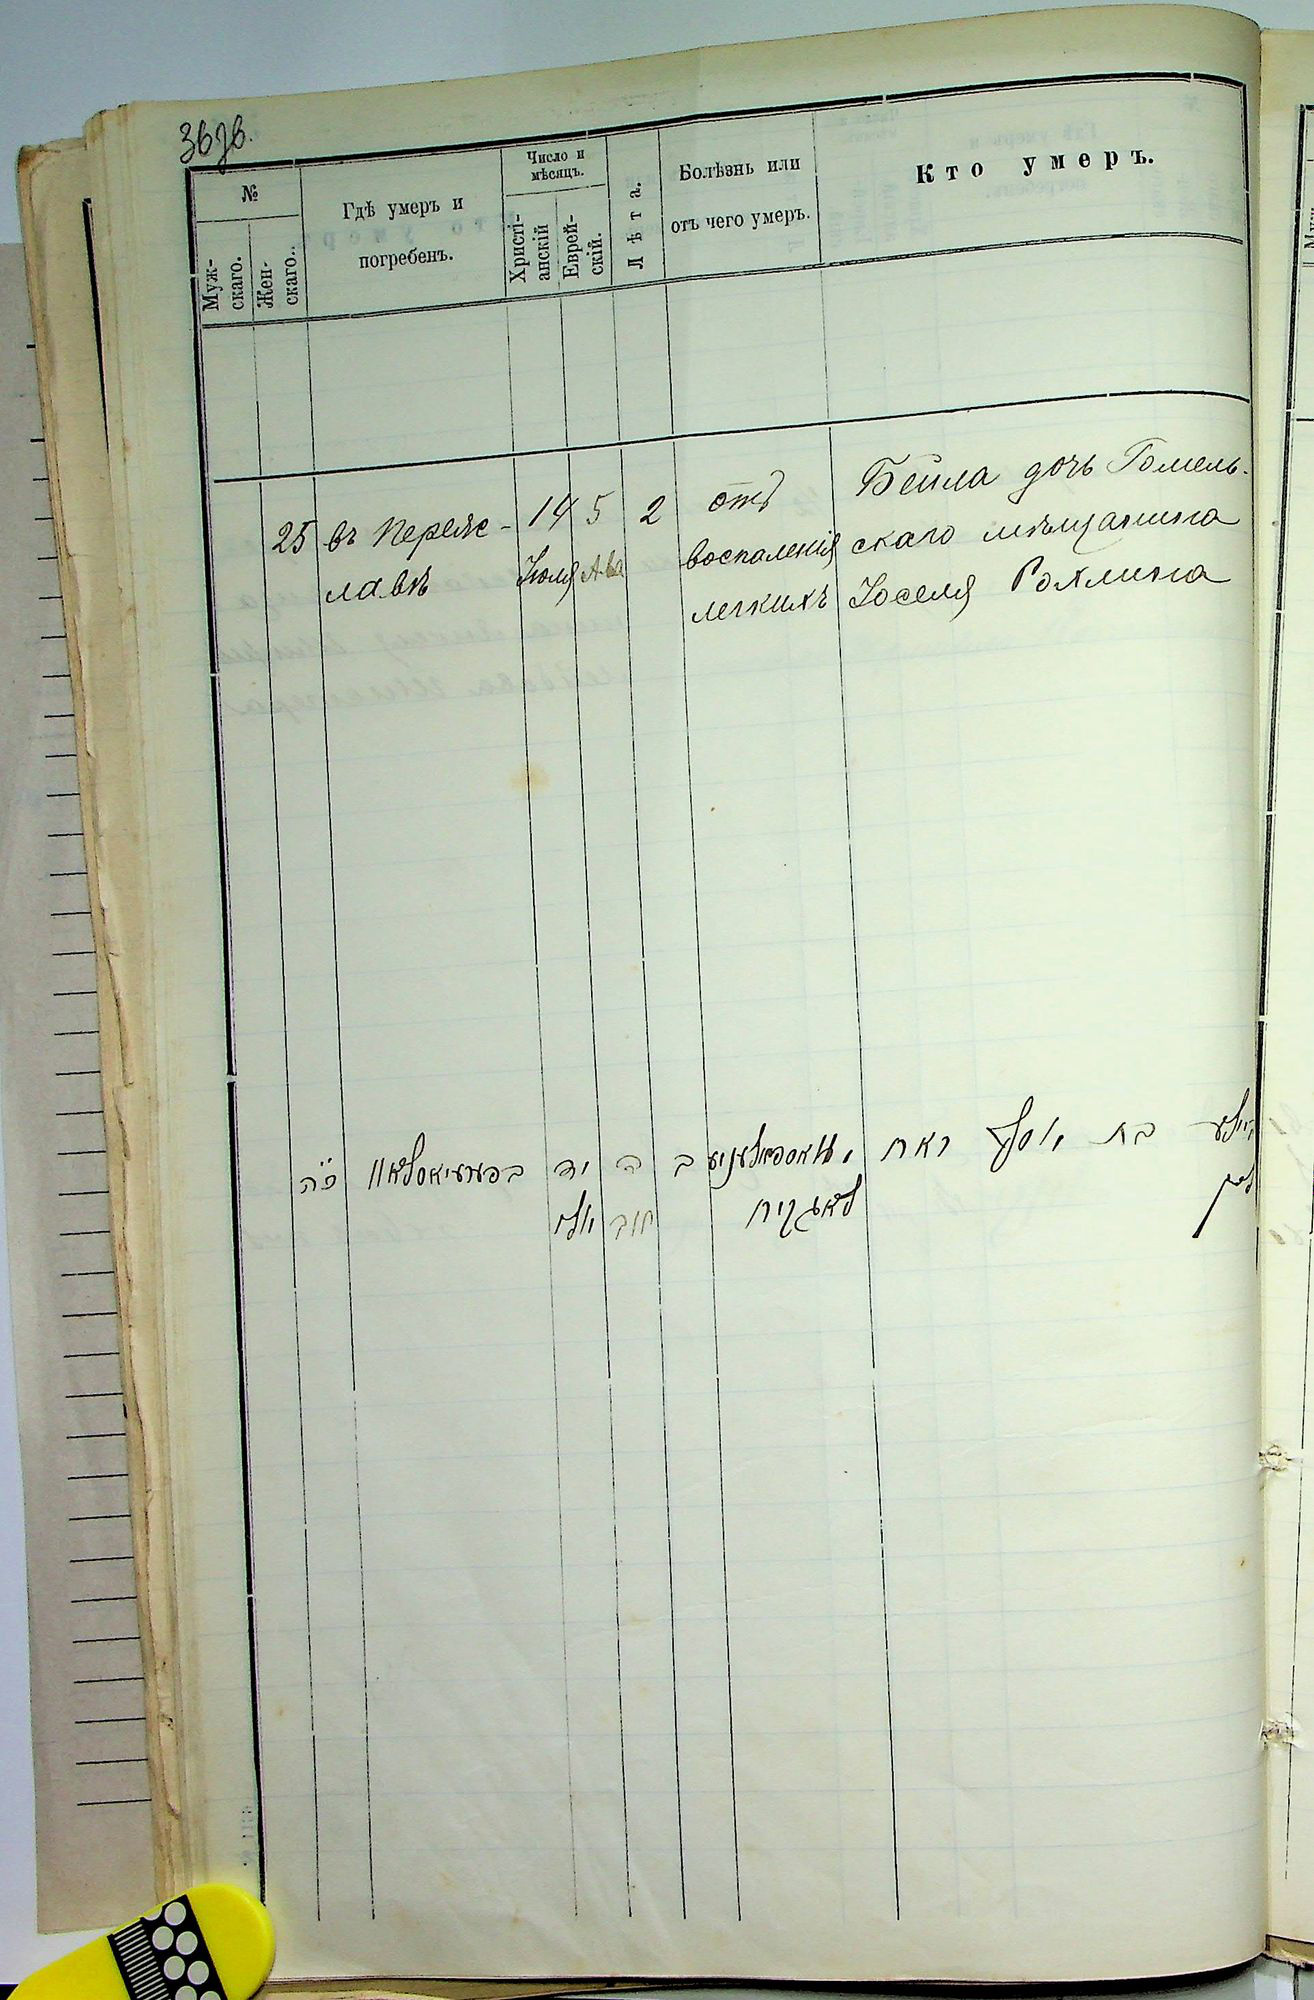 36об.
№
Муж-
скаго.
Жен-
скаго.
Гдѣ умеръ и
погребенъ.
Число и
мѣсяцъ.
Христі-
анскій
Еврей-
скій.
Лѣта.
Болѣзнь или
отъ чего умеръ.
Кто умеръ.
25
въ Переяс-
лавѣ
14
Іюля
5
Ава
2
отъ
воспаленія
легкихъ
Бейла дочь Гомель-
скаго мѣщанина
Іоселя Рохлина
כה
יד
יולי
ה
ב
לאגקיח
בת יוסף ראח
לין